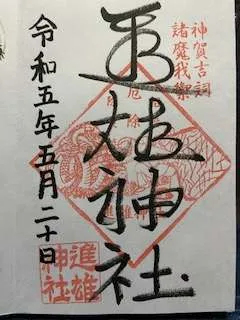 神賀吉詞
諸魔我禦
進雄神社
厄除
令和五年五月二十日
進雄
神社